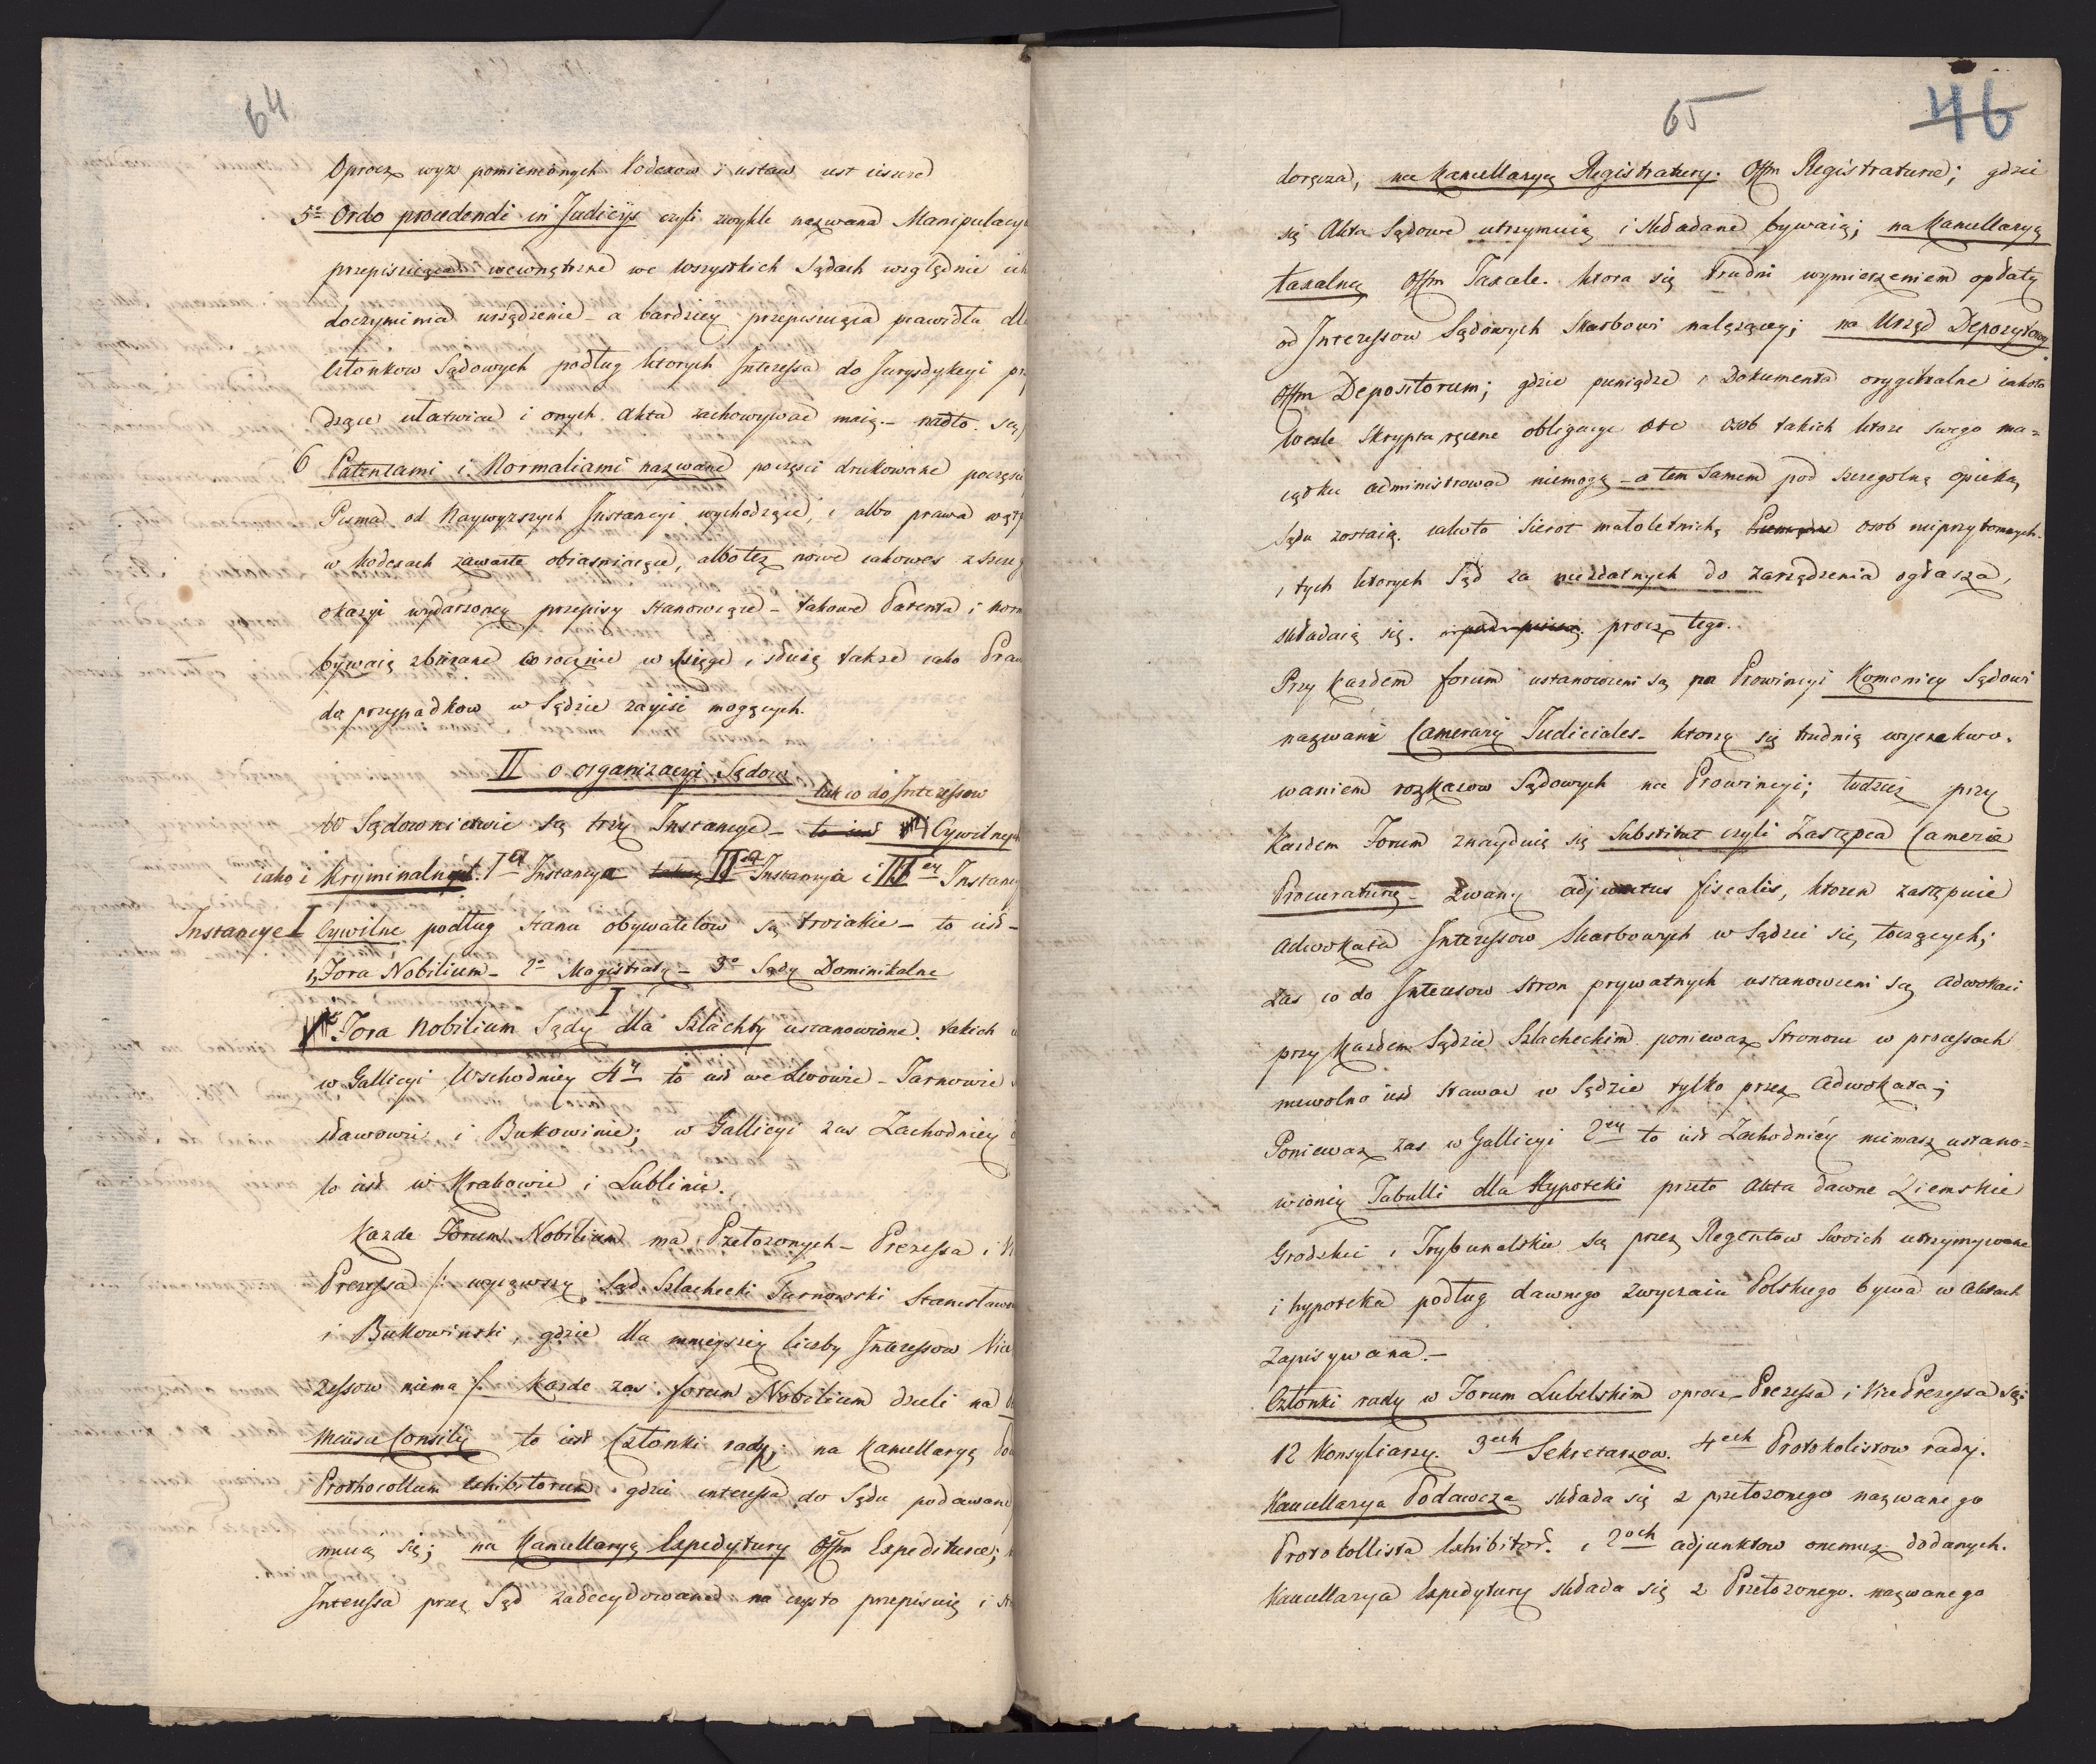 64
Oprocz wyż pomienionych Kodexow i ustaw iest ieszcze
5o Ordo procedendi in Judicijs czyli zwykle nazwana Manipulacy
przepisuiąca wewnętrzne we wszystkich Sądach względnie ich
do czynienia urządzenie - a bardziey przepisuiąca prawidła dla
Członkow Sądowych podług ktorych Interessa do Jurysdykcyi
dzące ułatwiać i onych Akta zachowywać maią. - nadto są
6 Patentami i Normaliami nazwane poczęści drukowane poczęści
Pisma od Naywyzszych Instancyi wychodzące, i albo prawa
w Kodexach zawarte obiasniaiące, albo tez nowe iakowes z
okazyi wydarzoney przepisy stanowiące - takowe Patenta i
bywaią zbierane corocznie w księgę i służą także iako
do przypadkow w Sądzie zayiść mogących.
II o organizacyi Sądow
tak co do Interessow
W Sądownictwie są trzy Instancye - to iest Cywilnych
iako i Kryminalnych. I Instancya II Instancya i III Instancy
Instancye I Cywilne podług stanu obywatelow są troiakie - to iest -
1, Fora Nobilium - 2o Magistraty - 3o Sądy Dominikalne
I
Fora Nobilium Sądy dla Szlachty ustanowione. takich
w Gallicyi Wschodniey 4y to iest we Lwowie - Tarnowie
sławowie i Bukowinie; w Gallicyi zas Zachodniey
to iest w Krakowie i Lublinie.
Kazde Forum Nobilium ma Przełozonych - Prezessa i
Prezessa /: wyiąwszy Sąd Szlachecki Tarnowski Stanisławow
i Bukowinski, gdzie dla mnieyszey liczby Interessow Vice
zessow niema /: Kazde zas forum Nobilium dzieli na
Mensa Consilij to iest Członki rady; na Kancellaryą
Prothocollum Exhibitorum gdzie interessa do Sądu podawane
muią się; na Kancellaryą Expedytury Offm Expediturae;
Interessa przez Sąd zadecydowane na czysto przepisuię i
65
46
doręcza, na Kancellaryą Registratury. Offm Registraturae; gdzie
się Akta Sądowe utrzymuią i składane bywaią; na Kancellaryą
taxalną Offm Taxale. ktora się trudni wymierzeniem opłaty
od Interessow Sądowych Skarbowi nalężącey; na Urząd Depozytowy
Offm Depositorum; gdzie pieniądze i Dokumenta oryginalne iakoto
Wexle Skrypta ręczne obligacye etc osob takich ktore swego ma=
iątku administrować niemogą - a tem samem pod szczegolną opieką
Sądu zostaią. iakoto Sierot małoletnich, osob nieprzytomnych.
i tych ktorych Sąd za niezdatnych do zarządzenia ogłasza,
składaią się. procz tego.
Przy kazdem forum ustanowieni są na Prowincyi Komornicy Sądowi
nazwani Camerarij Judiciales - ktorzy się trudnią wyexekwo-
waniem rozkazow Sądowych na Prowincyi; tudzież przy
Kazdem Forum znayduie się Substitut czyli Zastępca Camerae
Procuraturae - zwany adjunctus fiscalis, ktoren zastępuie
Adwokata Interessow Skarbowych w Sądzie się toczących;
Zas co do Interesow stron prywatnych ustanowieni są Adwokaci
przy Kazdem Sądzie Szlacheckim ponieważ Stronom w processach
niewolno iest stawać w Sądzie tylko przez Adwokata;
Ponieważ zas w Gallicyi 2ey to iest Zachodniey niemasz ustano=
wioney Tabulli dla Hypoteki przeto Akta dawne Ziemskie
Grodzkie i Trybunalskie są przez Regentow swoich utrzymywane
i hypoteka podług dawnego zwyczaiu Polskiego bywa w Aktach
Zapisywana. -
Członki rady w Forum Lubelskim oprocz Prezessa i Vice Prezessa są:
12 Konsyliarzy. 3ech Sekretarzow. 4ech Protokolistow rady.
Kancellarya Podawcza składa się z przełozonego nazwanego
Protokollista Exhibitor. i 2och adjunktow onemuz dodanych.
Kancellarya Expedytury składa się z Przełozonego nazwanego